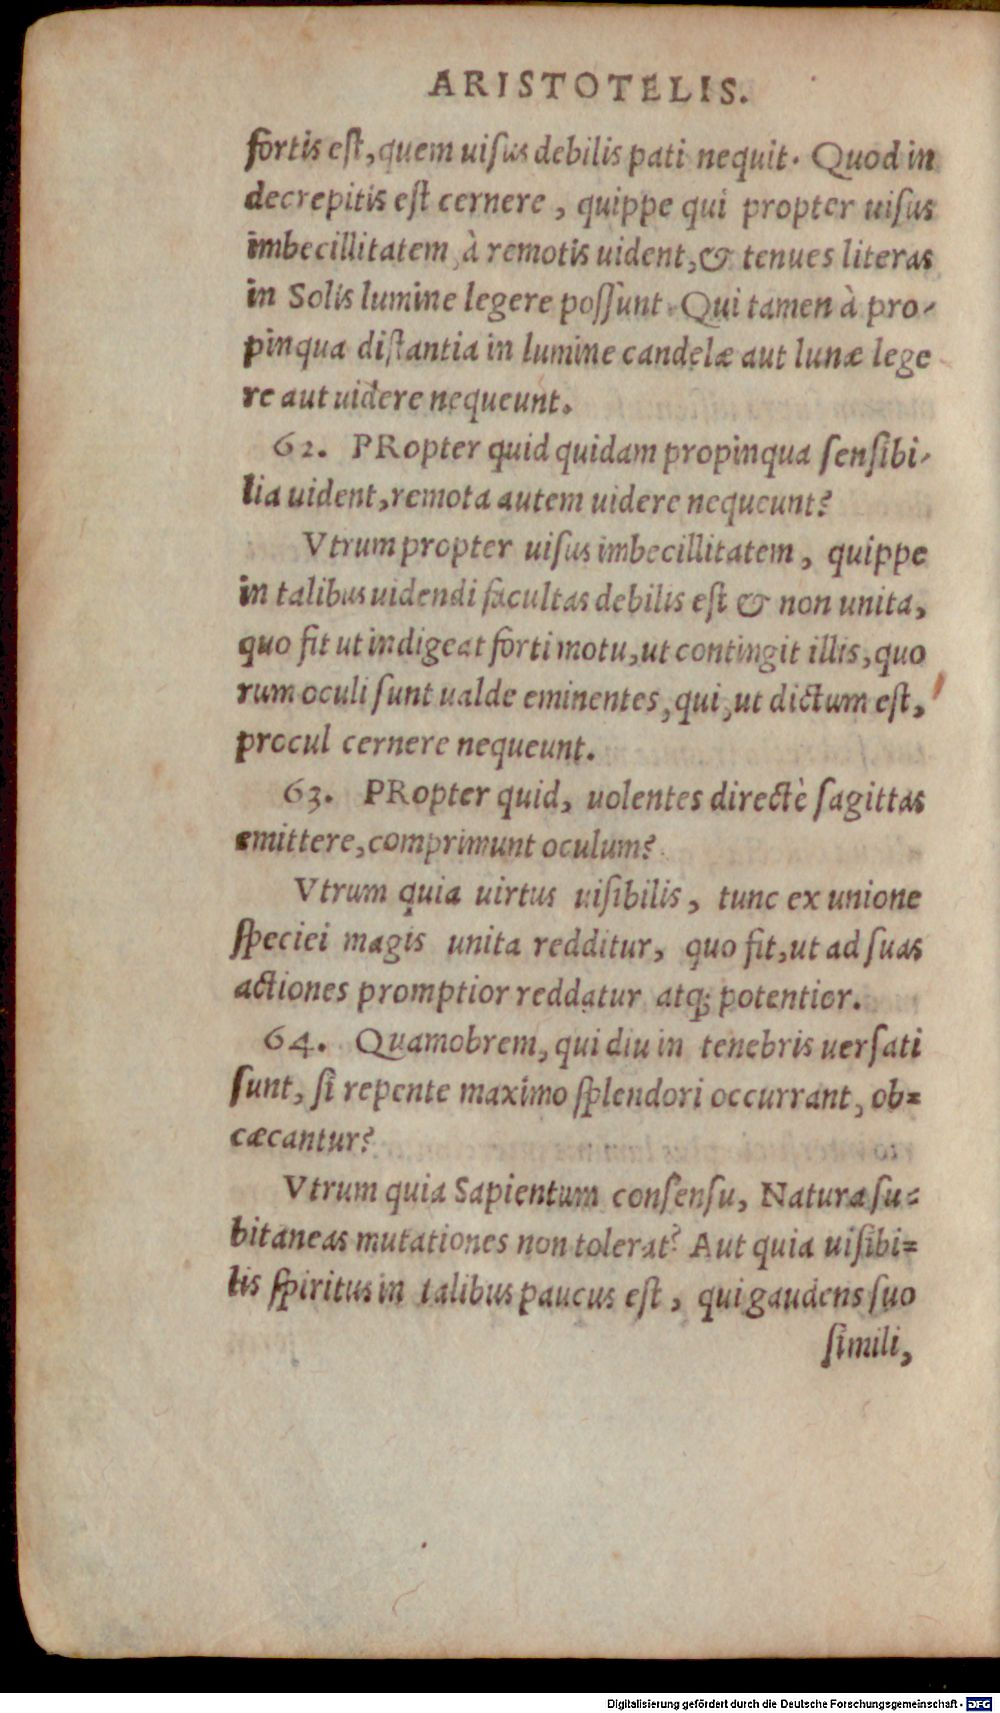 ARISTOTELIS.
fortis eſt, quem uiſus debilis pati nequit. Quod in
decrepitis eſt cernere, quippe qui propter uiſus
imbecillitatem, à remotis uident, & tenues literas
in Solis lumine legere poſſunt. Qui tamen à pro-
pinqua diſtantia in lumine candelæ aut lunæ lege
re aut uidere nequeunt.
62. PRopter quid quidam propinqua ſenſibi-
lia uident, remota autem uidere nequeunt?
Vtrum propter uiſus imbecillitatem, quippe
in talibus uidendi facultas debilis eſt & non unita,
quo fit ut indigeat forti motu, ut contingit illis, quo
rum oculi ſunt ualde eminentes, qui, ut dictum eſt,
procul cernere nequeunt.
63. PRopter quid, uolentes directè ſagittas
emittere, comprimunt oculum?
Vtrum quia uirtus uiſibilis, tunc ex unione
ſpeciei magis unita redditur, quo fit, ut ad ſuas
actiones promptior reddatur atq; potentior.
64. Quamobrem, qui diu in tenebris uerſati
ſunt, ſi repente maximo ſplendori occurrant, ob=
cæcantur?
Vtrum quia Sapientum conſenſu, Natura ſu=
bitaneas mutationes non tolerat? Aut quia uiſibi=
lis ſpiritus in talibus paucus eſt, qui gaudens ſuo
ſimili,
Digitalisierung gefördert durch die Deutsche Forschungsgemeinschaft - DFG